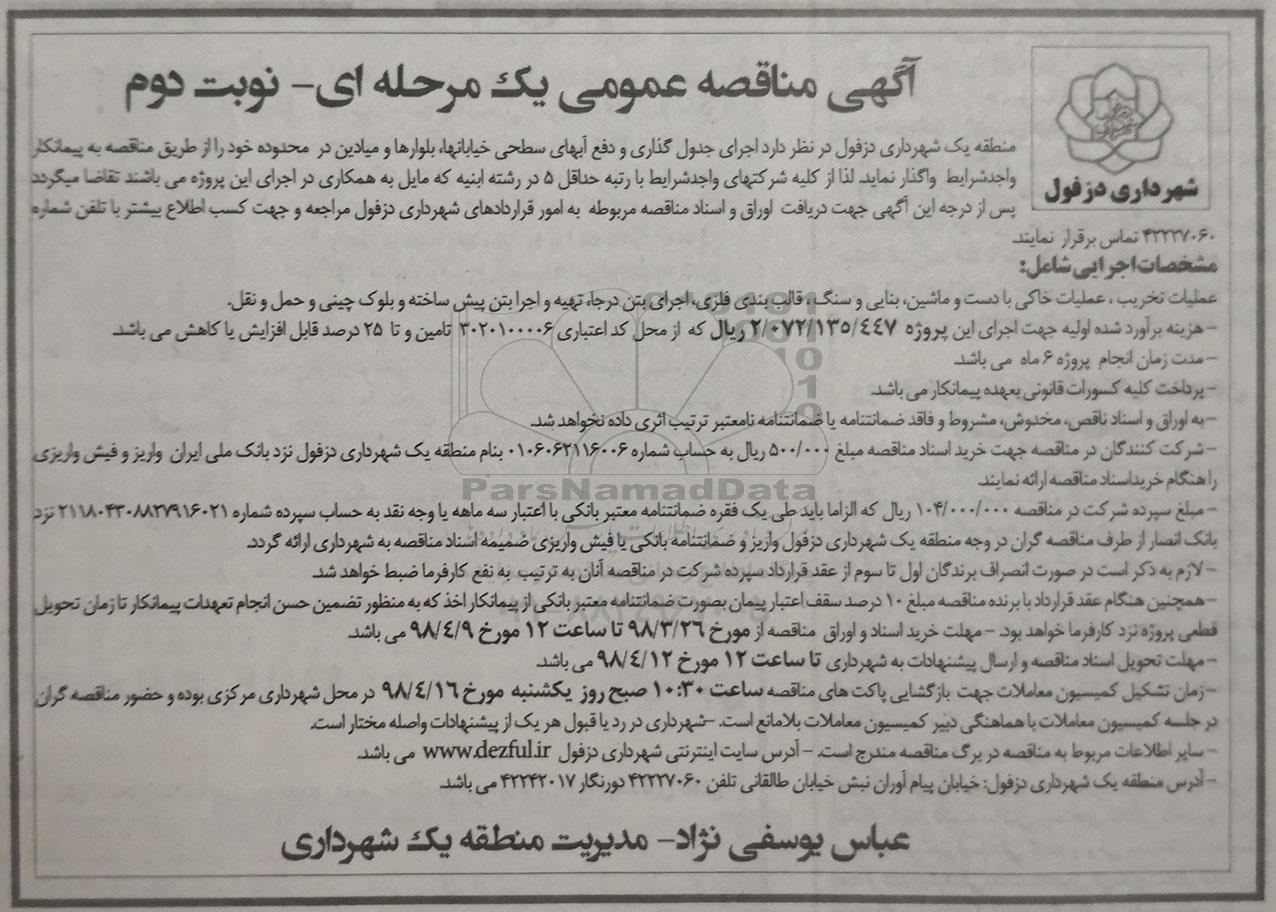 آگهی مناقصه عمومی یک مرحله ای- نوبت دوم
شهرداری دزفول
منطقه یک شهرداری دزفول در نظر دارد اجرای جدول گذاری و دفع آبهای سطحی خیابانها، بلوارها و میادین در محدوده خود را از طریق مناقصه به پیمانکار
واجدشرایط واگذار نماید. لذا از کلیه شرکتهای واجدشرایط با رتبه حداقل ۵ در رشته ابنیه که مایل به همکاری در اجرای این پروژه می باشند تقاضا میگردد
پس از درجه این آگهی جهت دریافت اوراق و اسناد مناقصه مربوطه به امور قراردادهای شهرداری دزفول مراجعه و جهت کسب اطلاع بیشتر با تلفن شماره
۴۲۲۳۷۰۶۰ تماس برقرار نمایند.
مشخصات اجرایی شامل:
عملیات تخریب ، عملیات خاکی با دست و ماشین، بنایی و سنگ ، قالب بندی فلزی، اجرای بتن درجا، تهیه و اجرا بتن پیش ساخته و بلوک چینی و حمل و نقل.
-هزینه برآورد شده اولیه جهت اجرای این پروژه ۲/۰۷۲/۱۳۵/۴۴۷ ریال که از محل کد اعتباری ۳۰۲۰۱۰۰۰۰۶ تامین و تا ۲۵ درصد قابل افزایش یا کاهش می باشد.
-مدت زمان انجام پروژه ۶ ماه می باشد.
-پرداخت کلیه کسورات قانونی بعهده پیمانکار می باشد.
-به اوراق و اسناد ناقص، مخدوش، مشروط و فاقد ضمانتنامه یا ضمانتنامه نامعتبر ترتیب اثری داده نخواهد شد.
-شرکت کنندگان در مناقصه جهت خرید اسناد مناقصه مبلغ ۵۰۰/۰۰۰ ریال به حساب شماره ۰۱۰۶۰۶۲۱۱۶۰۰۶ بنام منطقه یک شهرداری دزفول نزد بانک ملی ایران واریز و فیش واریزی
را هنگام خریداسناد مناقصه ارائه نمایند.
-مبلغ سپرده شرکت در مناقصه ۱۰۴/۰۰۰/۰۰۰ ریال که الزاما باید طی یک فقره ضمانتنامه معتبر بانکی با اعتبار سه ماهه یا وجه نقد به حساب سپرده شماره ۲۱۱۸۰۴۳۰۸۸۲۷۹۱۶۰۲۱ نزد
بانک انصار از طرف مناقصه گران در وجه منطقه یک شهرداری دزفول واریز و ضمانتنامه بانکی یا فیش واریزی ضمیمه اسناد مناقصه به شهرداری ارائه گردد.
-لازم به ذکر است در صورت انصراف برندگان اول تا سوم از عقد قرارداد سپرده شرکت در مناقصه آنان به ترتیب به نفع کارفرما ضبط خواهد شد.
-همچنین هنگام عقد قرارداد با برنده مناقصه مبلغ ۱۰ درصد سقف اعتبار پیمان بصورت ضمانتنامه معتبر بانکی از پیمانکار اخذ که به منظور تضمین حسن انجام تعهدات پیمانکار تا زمان تحویل
قطعی پروژه نزد کارفرما خواهد بود. -مهلت خرید اسناد و اوراق مناقصه از مورخ ۹۸/۳/۲۶ تا ساعت ۱۲ مورخ ۹۸/۴/۹ می باشد.
-مهلت تحویل اسناد مناقصه و ارسال پیشنهادات به شهرداری تا ساعت ۱۲ مورخ ۹۸/۴/۱۲ می باشد.
-زمان تشکیل کمیسیون معاملات جهت بازگشایی پاکت های مناقصه ساعت ۱۰:۳۰ صبح روز یکشنبه مورخ ۹۸/۴/۱۶ در محل شهرداری مرکزی بوده و حضور مناقصه گران
در جلسه کمیسیون معاملات با هماهنگی دبیر کمیسیون معاملات بلامانع است. -شهرداری در رد یا قبول هر یک از پیشنهادات واصله مختار است.
-سایر اطلاعات مربوط به مناقصه در برگ مناقصه مندرج است. - آدرس سایت اینترنتی شهرداری دزفول www.dezful.ir می باشد.
-آدرس منطقه یک شهرداری دزفول: خیابان پیام آوران نبش خیابان طالقانی تلفن ۴۲۲۲۷۰۶۰ دورنگار ۴۲۲۴۲۰۱۷ می باشد.
عباس یوسفی نژاد- مدیریت منطقه یک شهرداری
ParsNamadData